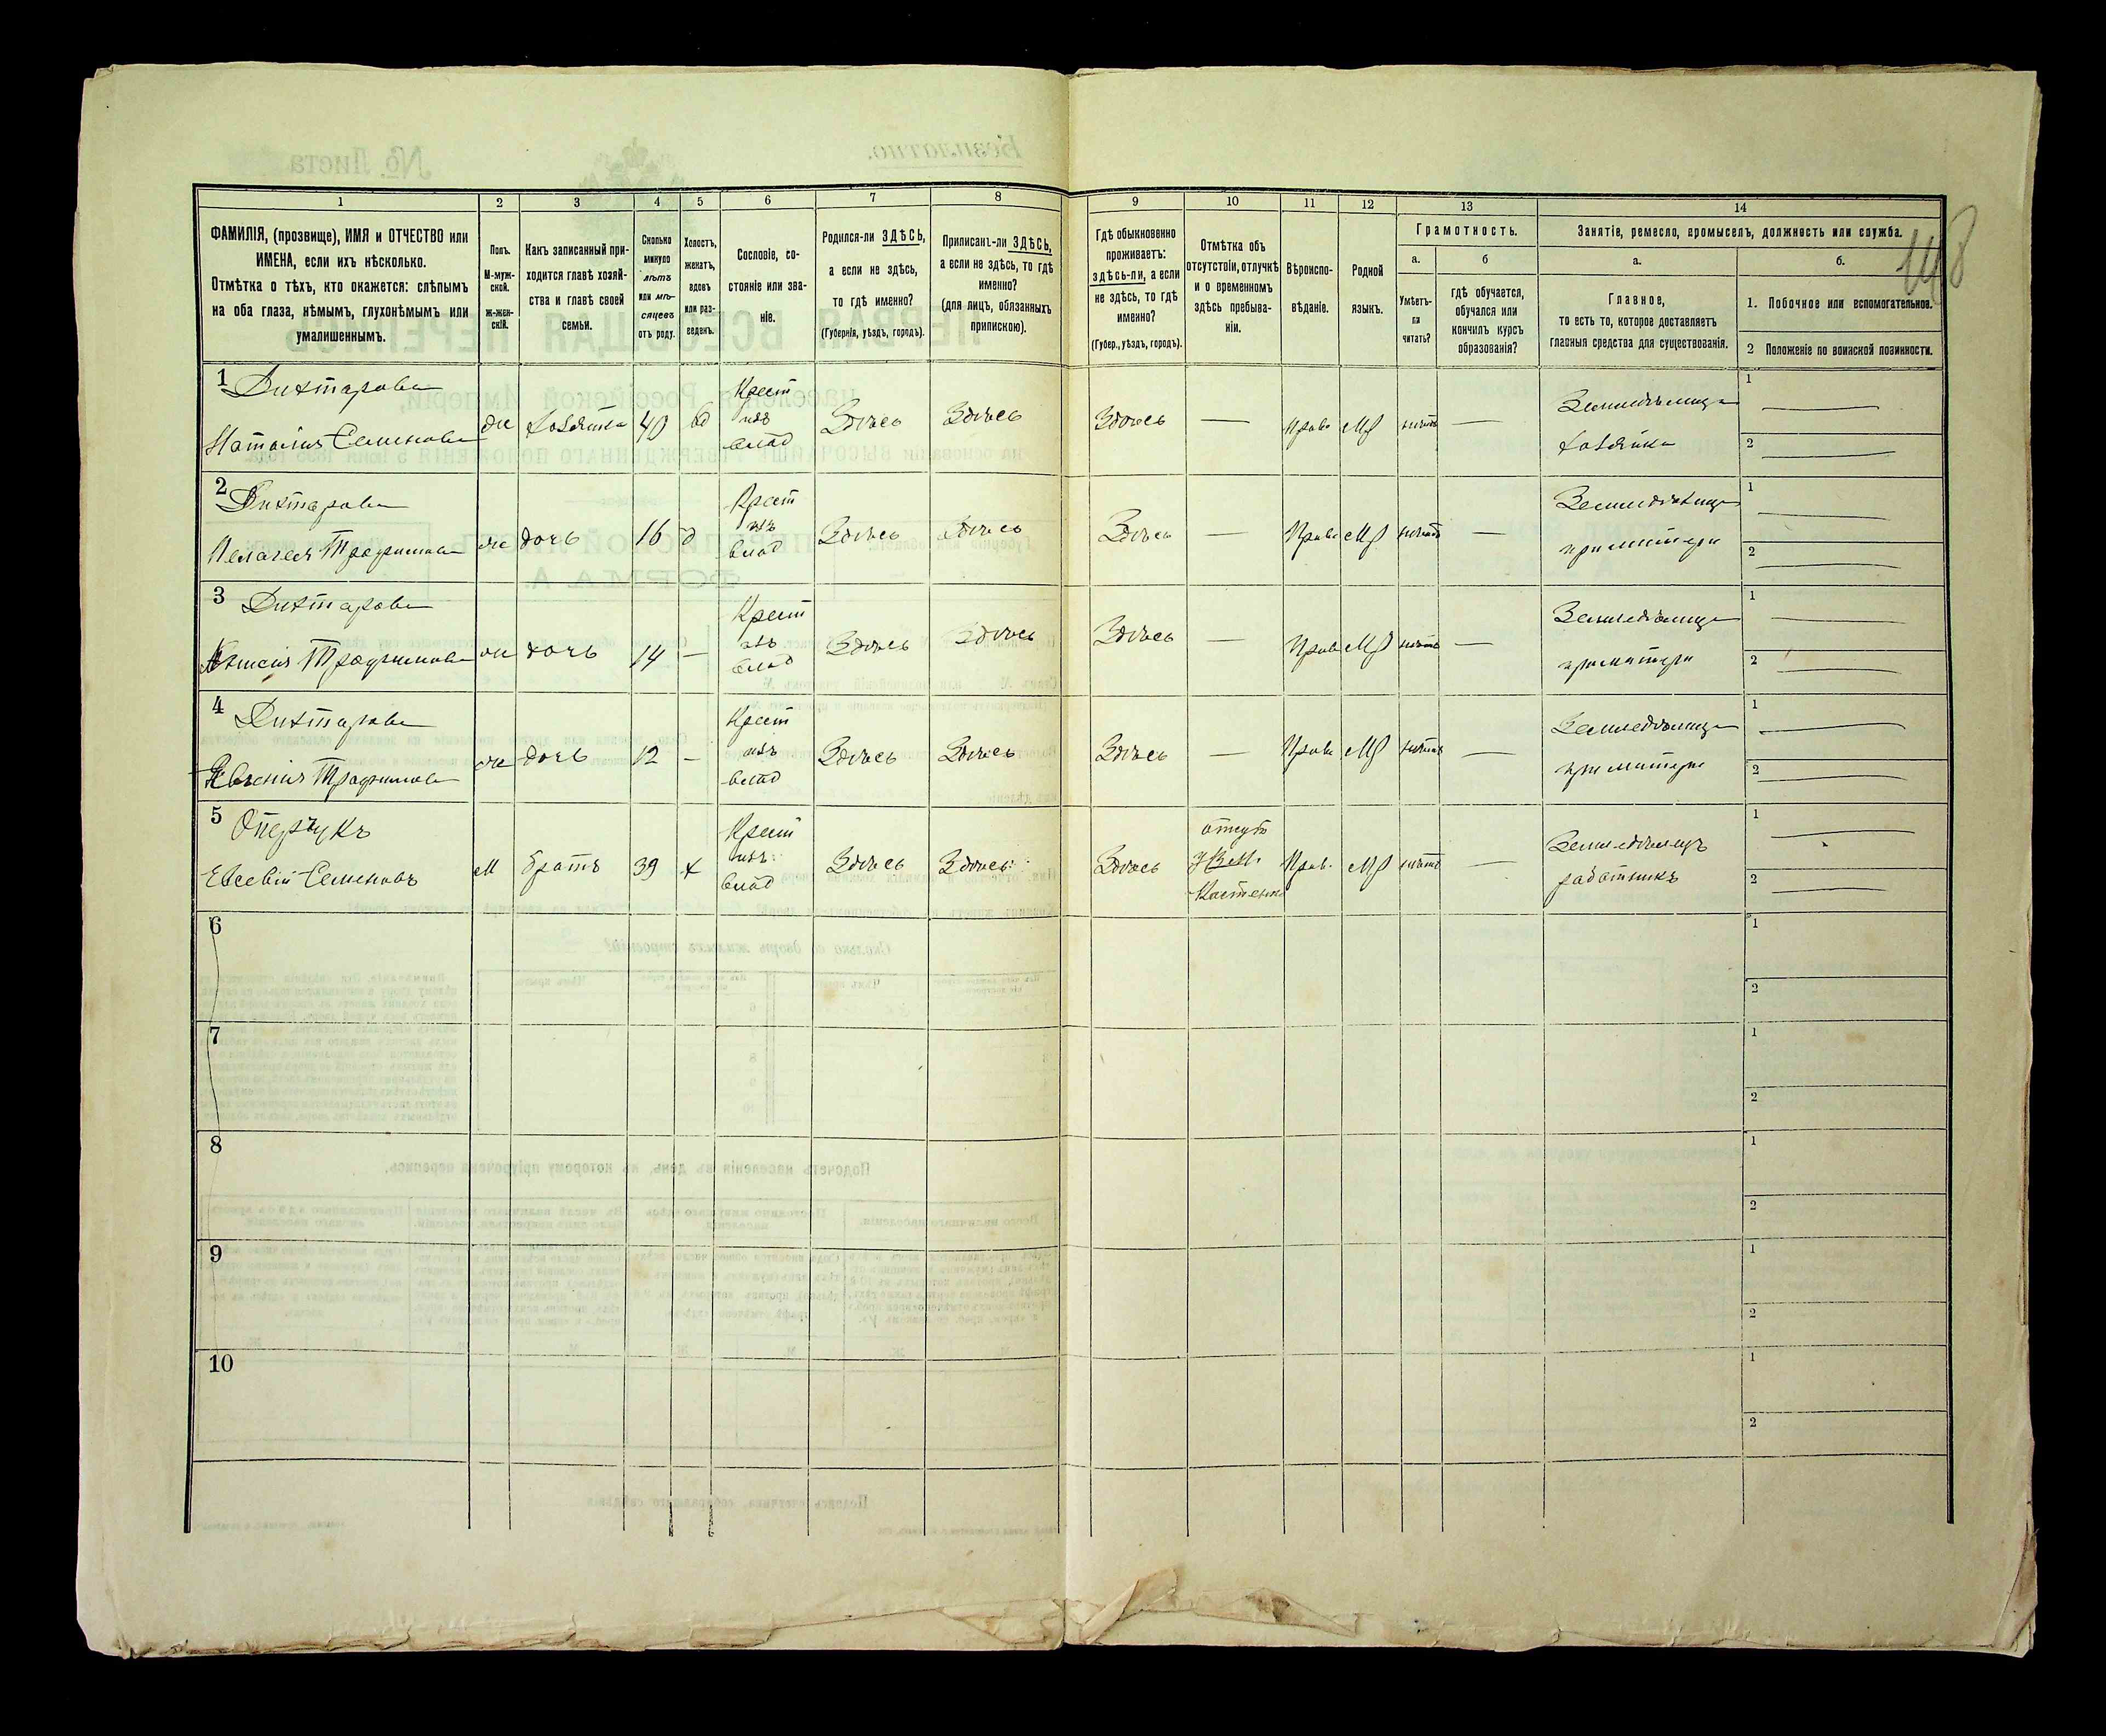 148
1 2 3 4 5 6 7 8 9 10 11 12 13 14
ФАМИЛІЯ, (прозвище), ИМЯ и ОТЧЕСТВО или
ИМЕНА, если ихъ нѣсколько.
Отмѣтка о тѣхъ, кто окажется: слѣпымъ
на оба глаза, нѣмымъ, глухонѣмымъ или
умалишеннымъ.
Полъ.
М-муж-
ской.
Ж-жен-
скій.
Какъ записанный при-
ходится главѣ хозяй-
ства и главѣ своей
семьи.
Сколько
минуло
лѣтъ
или мѣ-
сяцевъ
отъ роду.
Холостъ,
женатъ,
вдовъ
или раз-
веденъ.
Сословіе, со-
стояніе или зва-
ніе.
Родился-ли ЗДѢСЬ,
а если не здѣсь,
то гдѣ именно?
(Губернія, уѣздъ, городъ).
Приписанъ-ли ЗДѢСЬ,
а если не здѣсь, то гдѣ
именно?
(для лицъ, обязанныхъ
припискою).
Гдѣ обыкновенно
проживаетъ:
здѣсь-ли, а если
не здѣсь, то гдѣ
именно?
(Губер., уѣздъ, городъ).
Отмѣтка объ
отсутствіи, отлучкѣ
и о временномъ
здѣсь пребыва-
ніи.
Вѣроиспо-
вѣданіе.
Родной
языкъ.
Грамотность.
а.
Умѣетъ-
ли
читать?
б
гдѣ обучается,
обучался или
кончилъ курсъ
образованія?
Занятіе, ремесло, промыселъ, должность или служба.
а.
Главное,
то есть то, которое доставляетъ
главныя средства для существованія.
б.
1. Побочное или вспомогательное.
2 Положеніе по воинской повинности.
1 Дихтярова
Наталія Семенова
ж хозяйка 40 вд
Крест
изъ
влад
Здѣсь Здѣсь Здѣсь — Прав МР нѣтъ —
Земледѣлица
хозяйка
1 —
2 —
2 Дихтярова
Пелагея Трофимова
ж дочь 16 д
Крест
изъ
влад
Здѣсь Здѣсь Здѣсь — Прав МР нѣтъ —
Земледѣлица
при матери
1 —
2 —
3 Дихтярова
Трофимова
ж дочь 14 —
Крест
изъ
влад
Здѣсь Здѣсь Здѣсь — Прав МР нѣтъ —
Земледѣлица
при матери
1 —
2 —
4 Дихтярова
Евгенія Трофимова
ж дочь 12 —
Крест
изъ
влад
Здѣсь Здѣсь Здѣсь — Прав МР нѣтъ —
Земледѣлица
при матери
1 —
2 —
5
Евсевій Семеновъ
М братъ 39 х
Крест
изъ
влад
Здѣсь Здѣсь Здѣсь
Прав. МР нѣтъ —
Земледѣлецъ
работникъ
1 —
2 —
6
1
2
7
1
2
8
1
2
9
1
2
10
1
2